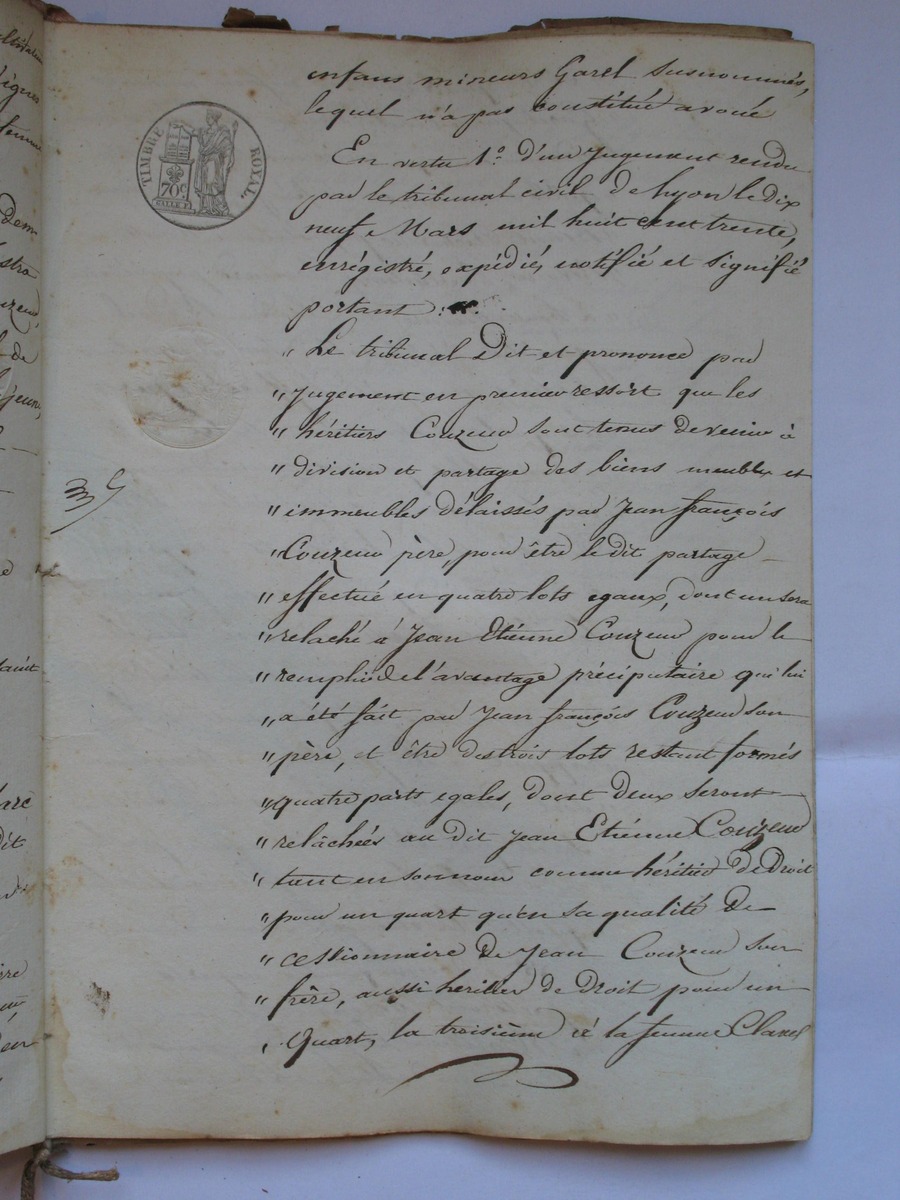 TIMBRE ROYAL
70c
enfans mineurs Garel susnommés,
lequel n'a pas constitué avoué
En vertu 1.º d'un Jugement rendu
par le tribunal civil de Lyon le Dix
neuf Mars mil huit cent trente,
enrégistré, expédié, notifié et signifié
portant :
" Le tribunal Dit et prononce par
" Jugement en premier ressort que les
" héritiers Couzeur sont tenus de venir à
" division et partage des biens meubles et
" immeubles délaissés par Jean françois
" Couzeur père, pour être le dit partage
" effectué en quatre lots egaux, dont un sera
" relaché à Jean Etiénne Couzeur pour le
" remploi de l'avantage préciputaire qui lui
" a été fait par Jean françois Couzeur son
" père, et être des trois lots restant formés
" quatre parts egales, dont deux seront
" relâchées au dit Jean Etiénne Couzeur
" tant en son nom comme héritier de Droit
" pour un quart qu'en sa qualité de
" cessionnaire de Jean Couzeur son
" frère, aussi heritier de droit pour un
" Quart, la troisième à la femme Clanel